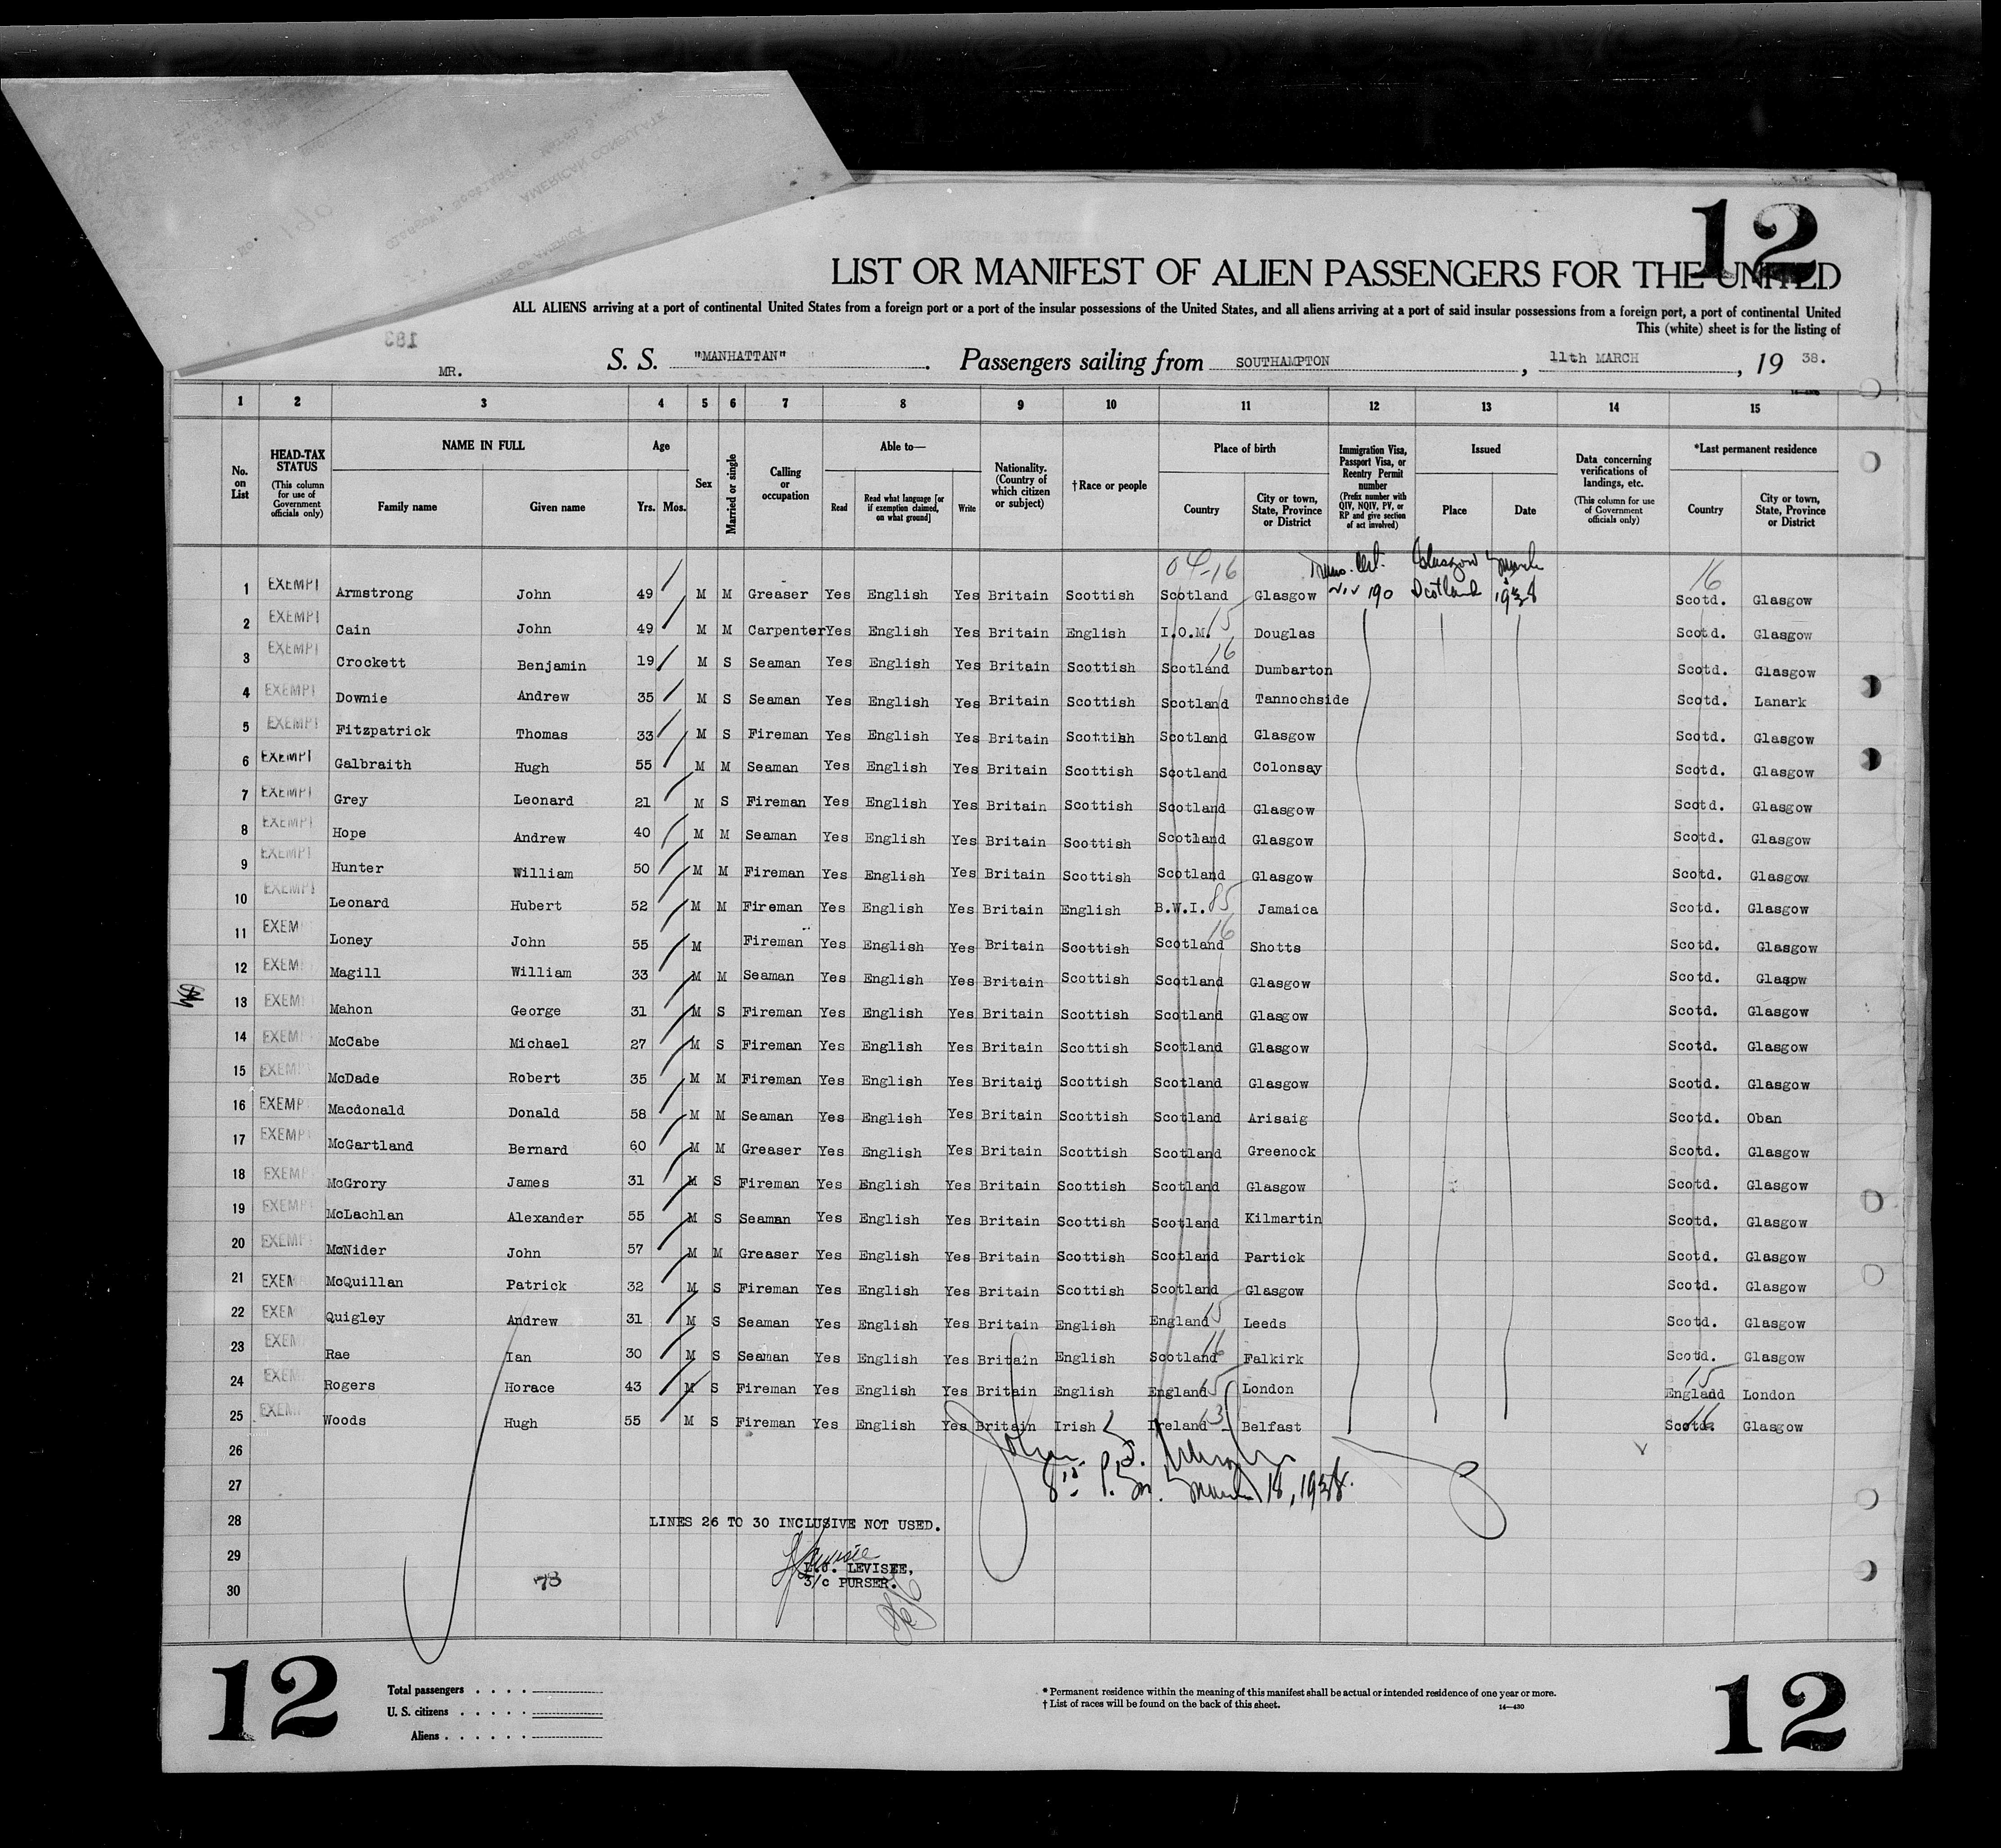 12
LIST OR MANIFEST OF ALIEN PASSENGERS FOR THE UNITED
ALL ALIENS arriving at a port of continental United States from a foreign port or a port of the insular possessions of the United States, and all aliens arriving at a port of said insular possessions from a foreign port, a port of continental United
This (white) sheet is for the listing of
183
MR. S. S. "MANHATTAN" . Passengers sailing from SOUTHAMPTON , 11th MARCH , 19 38.
1 2 3 4 5 6 7 8 9 10 11 12 13 14 15
No. on List
HEAD-TAX STATUS (This column for use of Government officials only)
NAME IN FULL Family name Given name
Age Yrs. Mos.
Sex
Married or single
Calling or occupation
Able to— Read Read what language [or if exemption claimed, on what ground] Write
Nationality. (Country of which citizen or subject)
† Race or people
Place of birth Country City or town, State, Province or District
Immigration Visa, Passport Visa, or Reentry Permit number (Prefix number with QIV, NQIV, PV, or RP and give section of act involved)
Issued Place Date
Data concerning verifications of landings, etc. (This column for use of Government officials only)
*Last permanent residence Country City or town, State, Province or District
04-16 Glasgow March 16
1 EXEMPT Armstrong John 49 M M Greaser Yes English Yes Britain Scottish Scotland Glasgow 190 Scotland 1938 Scotd. Glasgow
2 EXEMPT Cain John 49 M M Carpenter Yes English Yes Britain English I.O.M. 15 Douglas Scotd. Glasgow
3 EXEMPT Crockett Benjamin 19 M S Seaman Yes English Yes Britain Scottish Scotland 16 Dumbarton Scotd. Glasgow
4 EXEMPT Downie Andrew 35 M S Seaman Yes English Yes Britain Scottish Scotland Tannochside Scotd. Lanark
5 EXEMPT Fitzpatrick Thomas 33 M S Fireman Yes English Yes Britain Scottish Scotland Glasgow Scotd. Glasgow
6 EXEMPT Galbraith Hugh 55 M M Seaman Yes English Yes Britain Scottish Scotland Colonsay Scotd. Glasgow
7 EXEMPT Grey Leonard 21 M S Fireman Yes English Yes Britain Scottish Scotland Glasgow Scotd. Glasgow
8 EXEMPT Hope Andrew 40 M M Seaman Yes English Yes Britain Scottish Scotland Glasgow Scotd. Glasgow
9 EXEMPT Hunter William 50 M M Fireman Yes English Yes Britain Scottish Scotland Glasgow Scotd. Glasgow
10 EXEMPT Leonard Hubert 52 M M Fireman Yes English Yes Britain English B.W.I. 85 Jamaica Scotd. Glasgow
11 EXEM Loney John 55 M Fireman Yes English Yes Britain Scottish Scotland 16 Shotts Scotd. Glasgow
12 EXEM Magill William 33 M M Seaman Yes English Yes Britain Scottish Scotland Glasgow Scotd. Glasgow
13 EXEM Mahon George 31 M S Fireman Yes English Yes Britain Scottish Scotland Glasgow Scotd. Glasgow
14 EXEM McCabe Michael 27 M S Fireman Yes English Yes Britain Scottish Scotland Glasgow Scotd. Glasgow
15 EXEM McDade Robert 35 M M Fireman Yes English Yes Britain Scottish Scotland Glasgow Scotd. Glasgow
16 EXEMP Macdonald Donald 58 M M Seaman Yes English Yes Britain Scottish Scotland Arisaig Scotd. Oban
17 EXEMP McGartland Bernard 60 M M Greaser Yes English Yes Britain Scottish Scotland Greenock Scotd. Glasgow
18 EXEMP McGrory James 31 M S Fireman Yes English Yes Britain Scottish Scotland Glasgow Scotd. Glasgow
19 EXEMP McLachlan Alexander 55 M S Seaman Yes English Yes Britain Scottish Scotland Kilmartin Scotd. Glasgow
20 EXEMP McNider John 57 M M Greaser Yes English Yes Britain Scottish Scotland Partick Scotd. Glasgow
21 EXEM McQuillan Patrick 32 M S Fireman Yes English Yes Britain Scottish Scotland Glasgow Scotd. Glasgow
22 EXEM Quigley Andrew 31 M S Seaman Yes English Yes Britain English England 15 Leeds Scotd. Glasgow
23 EXEM Rae Ian 30 M S Seaman Yes English Yes Britain English Scotland 16 Falkirk Scotd. Glasgow
24 EXEM Rogers Horace 43 M S Fireman Yes English Yes Britain English England 15 London England 15 London
25 EXEM Woods Hugh 55 M S Fireman Yes English Yes Britain Irish Ireland 3 Belfast Scotd. 16 Glasgow
26
27 P.M. March 18, 1938.
28 LINES 26 TO 30 INCLUSIVE NOT USED.
29 LEVISEE,
30 3/c PURSER.
12
Total passengers
U. S. citizens
Aliens
* Permanent residence within the meaning of this manifest shall be actual or intended residence of one year or more.
† List of races will be found on the back of this sheet. 14—430
12